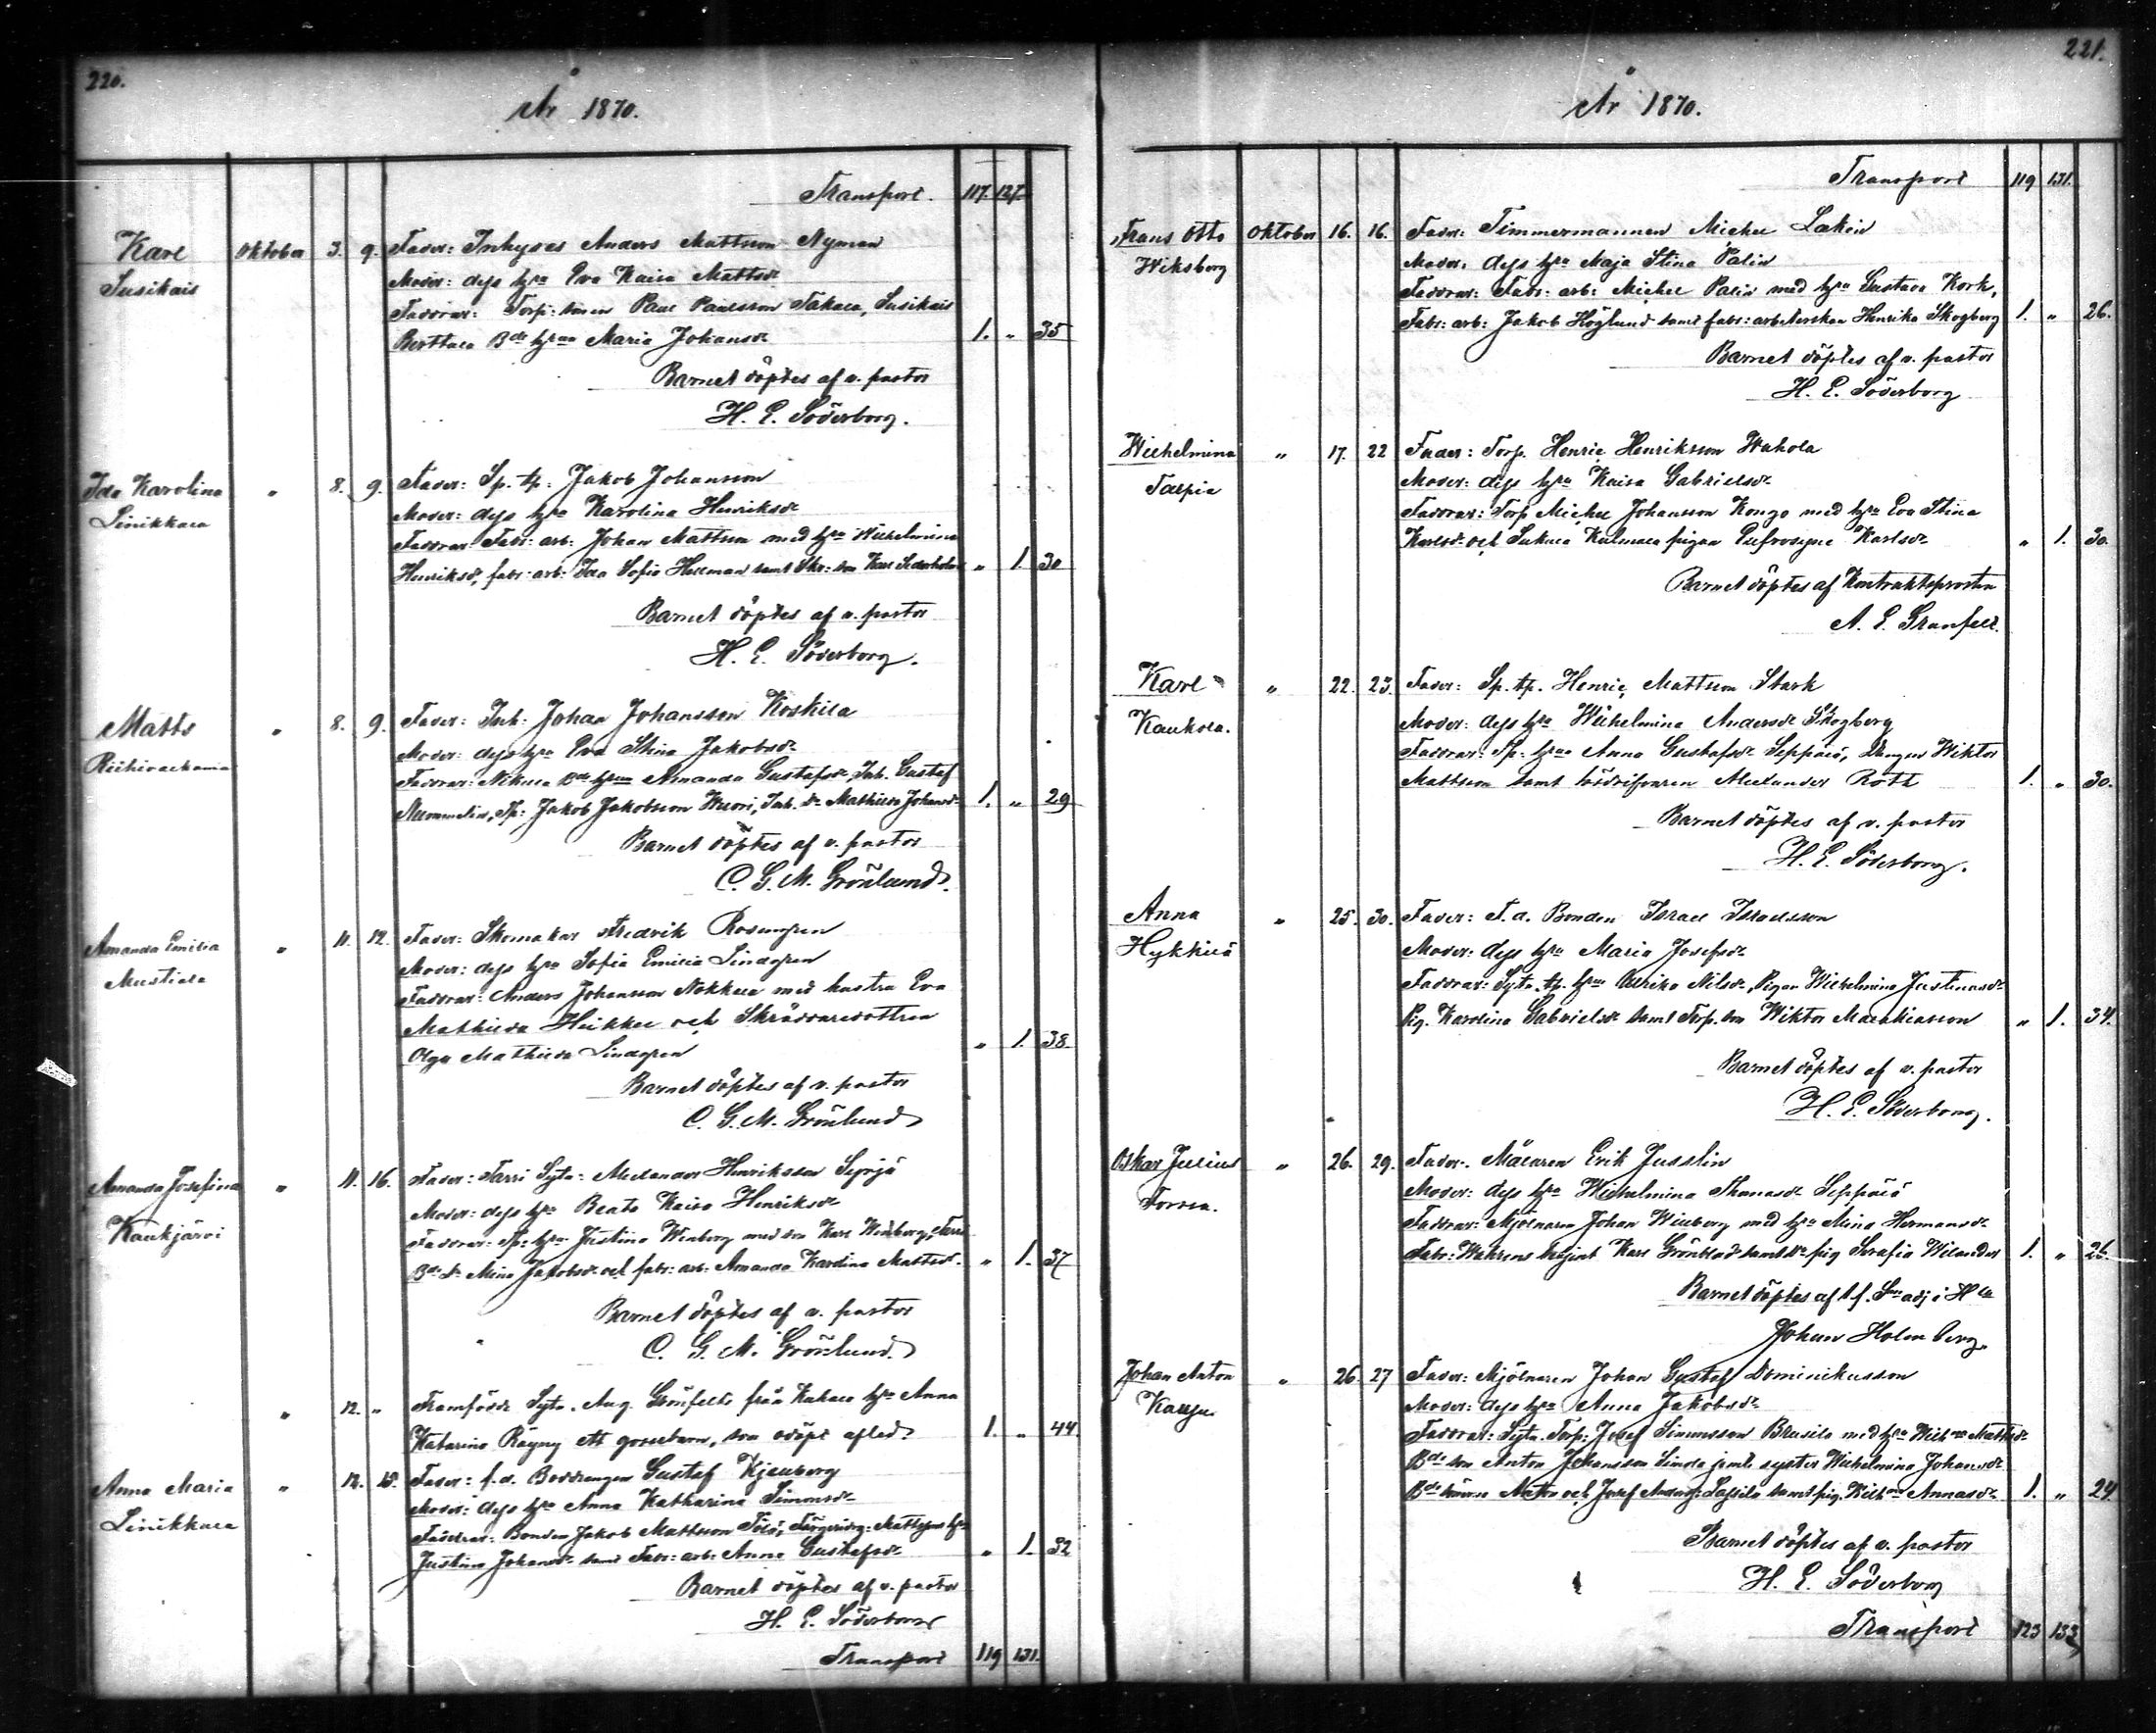 220.
År 1870.
Transport. 117. 127.
Karl Oktober 3. 9. Fader: Inhyses Anders Mattsson Nyman
Susikais Moder: dess hru Eva Kaisa Mattsdr
Faddrar: Torp: sonen Paul Paulsson Takala, Susikais
Berttala Bde hrun Maria Johansdr 1. " 35
Barnet döptes af v. pastor
H. E. Söderborg.
Ida Karolina " 8. 9. Fader: Sp. tp. Jakob Johansson
Linikkala Moder: dess hru Karolina Henriksdr
Faddrar: Fabr: arb: Johan Mattsson med hru Wilhelmina
Henriksdr, fabr: arb: Ida Sofia Hellman samt Skr: son Karl " 1. 30
Barnet döptes af v. pastor
H. E. Söderborg.
Matts " 8. 9. Fader: Inh. Johan Johansson Koskila
Moder: dess hru Eva Stina Jakobsdr
Faddrar: Bde hrun Amanda Gustafsdr, Inh. Gustaf
Nummelin, Tp: Jakob Jakobsson Wuori, Inh. dr Mathilda Johansdr 1. " 29
Barnet döptes af v. pastor
C. G. M. Grönlund.
Amanda Emilia " 11. 12. Fader: Skomakar Fredrik Rosengren
Mustiala Moder: dess hru Sofia Emilia Lindgren
Faddrar: Anders Johansson Nokkala med hustru Eva
Mathilda Heikkel och Skräddaredottren
Olga Mathilda Lindgren " 1. 38.
Barnet döptes af v. pastor
C. G. M. Grönlund
Amanda Josefina " 11. 16. Fader: Torri Sytn: Alexander Henriksson Syrjä
Kaukjärvi Moder: dess hru Beata Kaisa Henriksdr
Faddrar: Tp: hru Justina Wenberg med son Karl Wenberg, Torri
Bde dr Mina Jakobsdr och fabr: arb: Amanda Karolina Mattsdr. " 1. 37
Barnet döptes af v. pastor
C. G. M. Grönlund.
" 12. " Framfödde Sytn. Aug. Grönfelts från Kuhala hru Anna
Katarina Räyny ett gossebarn, som odöpt afled. 1. " 44
Anna Maria " 12. 15. Fader: f.d. Boddrengen Gustaf Kjenberg
Linikkala Moder: dess hru Anna Katharina Simonsdr
Faddrar: Bonden Jakob Mattsson Tölö, hru
Justina Johansdr samt Fabr: arb: Anna Gustafsdr " 1. 32
Barnet döptes af v. pastor
H. E. Söderborg
Transport 119 131.
221.
År 1870.
Transport 119 131.
Frans Otto Oktober 16. 16. Fader: Timmermannen Michel Lakin
Wiksberg Moder: dess hru Maja Stina Palin
Faddrar: Fabr: arb: Michel Palin med hru Gustava Kork,
Fabr: arb: Jakob Höglund samt fabr: arbeterskan Henrika Skogberg 1. " 26.
Barnet döptes af v. pastor
H. E. Söderborg
Wilhelmina " 17. 22 Fader: Torp. Henric Henriksson Wahola
Talpia Moder: dess hru Kaisa Gabrielsdr
Faddrar: Torp Michel Johansson Kongo med hru Eva Stina
Karlsdr och Sukula Kulmala pigan Eufrosyne Karlsdr " 1. 30.
Barnet döptes af Kontraktsprosten
A. E. Granfelt.
Karl " 22. 23. Fader: Sp. tp. Henric Mattsson Stark
Kaukola. Moder: dess hru Wilhelmina Andersdr Skogberg
Faddrar: Tp: hrun Anna Gustafsdr Seppälä, Drengen Wiktor
Mattsson samt Alexander Roth 1. " 30.
Barnet döptes af v. pastor
H. E. Söderborg.
Anna " 25. 30. Fader: F. d. Bonden Israel Israelsson
Hykkilä Moder: dess hru Maria Josefsdr
Faddrar: Sytn. tp. hrun Ulrika Nilsdr, Pigan Wilhelmina Justinasdr
Pig. Karolina Gabrielsdr samt Torp. son Wiktor Malakiasson " 1. 34.
Barnet döptes af v. pastor
H. E. Söderborg.
Oskar Julius " 26. 29. Fader: Målaren Erik Jusslin
Forssa. Moder: dess hru Wilhelmina Thomasdr Seppälä
Faddrar: Mjölnaren Johan Winberg med hru Mina Hermansdr
Fabr: Karl Grönblad samt pig Serafia Wilander 1. " 26.
Barnet döptes af t.f. adj i
Johan Holmberg.
Johan Anton " 26. 27 Fader: Mjölnaren Johan Gustaf Dominikusson
Kaleju Moder: dess hru Anna Jakobsdr
Faddrar: Sytn. Torp: Josef Simonsson Brusila med hru Mattsdr
Bde son Anton Johansson Simola jemte syster Wilhelmina Johansdr
Bde sönerne Anton och Josef Lassila samt pig. Annasdr 1. " 24.
Barnet döptes af v. pastor
H. E. Söderborg
Transport 123 133